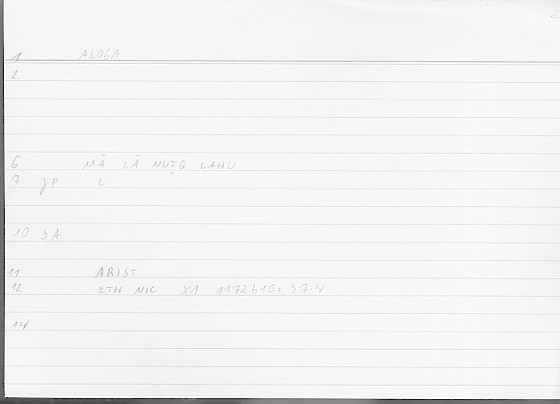 1 ALOGA
2
6 MĀ LĀ NUṬQ LAHU
7 gP L
10 SA
11 ARIST
12 ETH NIC X1 1172b10: 37.4
14